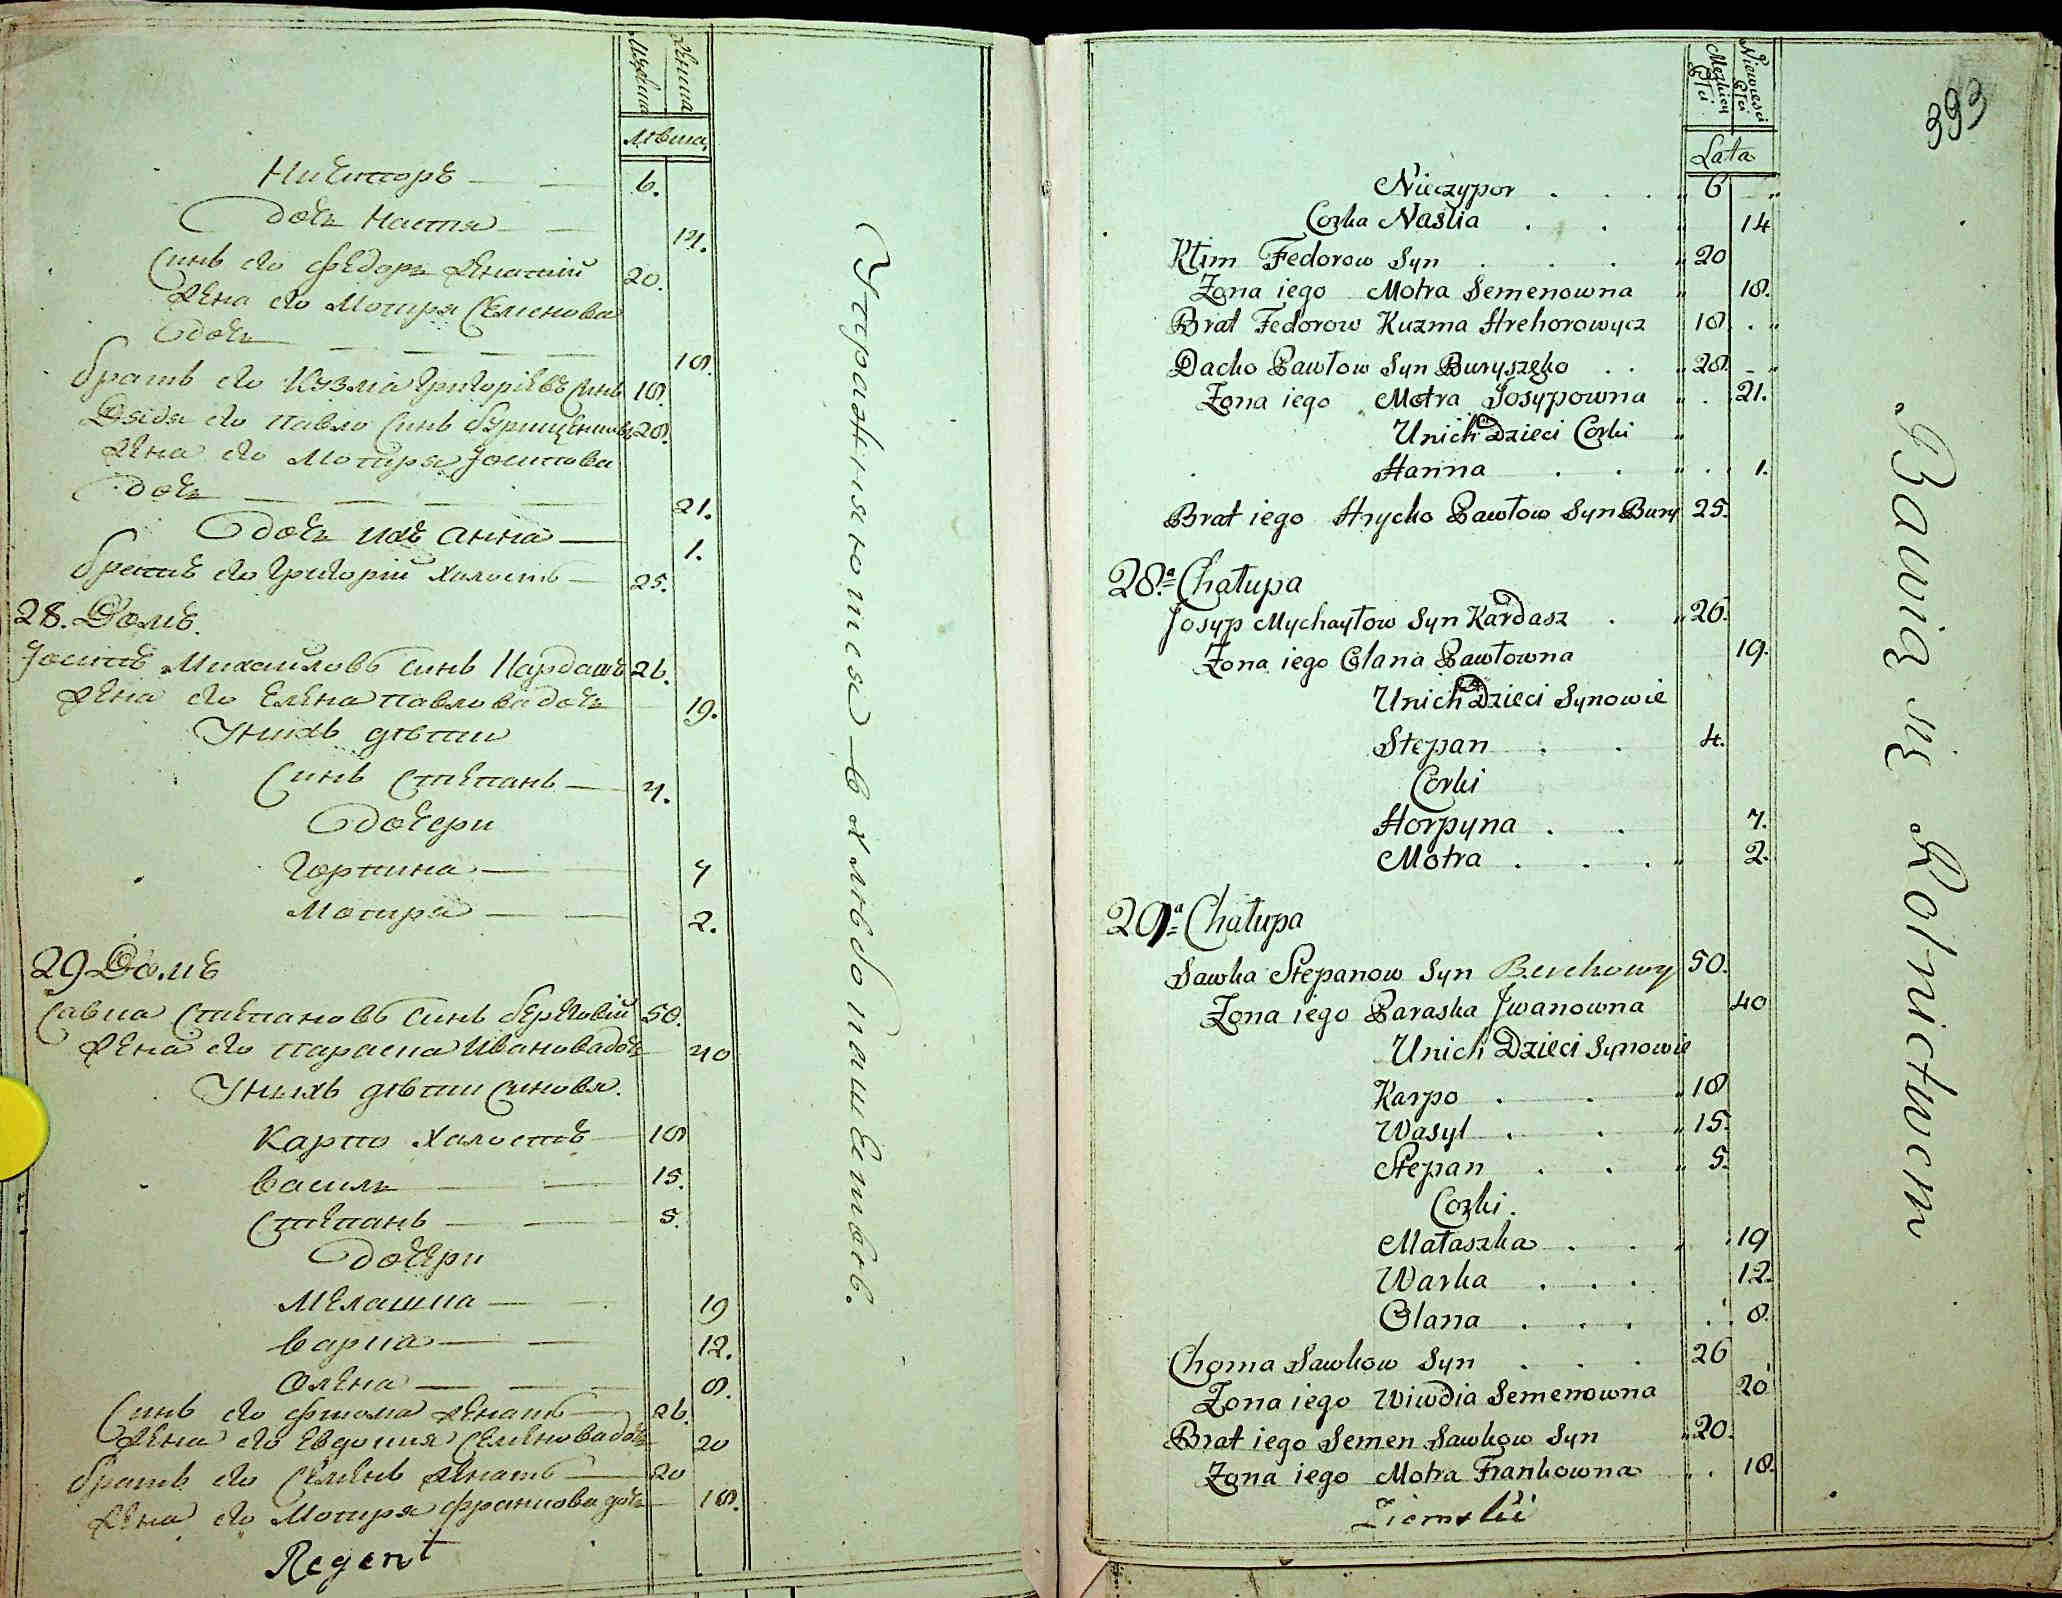 Мужеска
Женска
Лѣта
Никипоръ 6.
дочь Настя 14.
Синъ его Федоръ женатій 20.
Жена его Мотря Семенова
дочь 18.
братъ его Кузма Григоріевъ синъ 18.
его Павло синъ 28.
Жена его Мотря Іосипова
дочь 21.
дочь ихъ Анна 1.
братъ его Григорій холостъ 25.
28. Домъ.
Іосипъ Михаиловъ синъ Кардашъ 26.
Жена его Елена Павлова дочь 19.
У нихъ дѣти
Синъ Степанъ 4.
дочери
Горпина 7
Мотря 2.
29 Домъ
Савка Степановъ синъ Береговій 50.
Жена его Параска Иванова дочь 40
У нихъ дѣти синовя.
Карпо холостъ 18
Василь 15.
Степанъ 5.
дочери
Мелашка 19
Варка 12.
Олена 8.
Синъ его Фтома женатъ 26.
Жена его Евдокия Семенова дочь 20
братъ его Семенъ женатъ 20
Жена его Мотря Франкова дочь 18.
Regent
Упражняются в хлѣбопашествѣ.
393
Męzkiey Płci
Niewiesci Płci
Lata
Nieczypor 6
Corka Nastia 14
Klim Fedorow Syn 20
Zona iego Motra Semenowna 18.
Brat Fedorow Kuzma Hrehorowycz 18
Dacko Pawłow Syn Buryszeko 28.
Zona iego Motra Josypowna 21.
Unich Dzieci Corki
Hanna 1.
Brat iego Hrycko Pawłow Syn Bury 25.
28.ª Chałupa
Josyp Mychayłow Syn Kardasz 26.
Zona iego Olana Pawłowna 19.
Unich Dzieci Synowie
Stepan 4.
Corki
Horpyna 7.
Motra 2.
29ª Chałupa
Sawka Stepanow Syn Berehowy 50.
Zona iego Paraska Jwanowna 40
Unich Dzieci Synowie
Karpo 18
Wasyl 15.
Stepan 5.
Corki.
Małaszka 19
Warka 12.
Olana 8.
Choma Sawkow Syn 26
Zona iego Wiwdia Semenowna 20
Brat iego Semen Sawkow Syn 20.
Zona iego Motra Frankowna 18.
Ziemski
Bawią się Rolnictwem